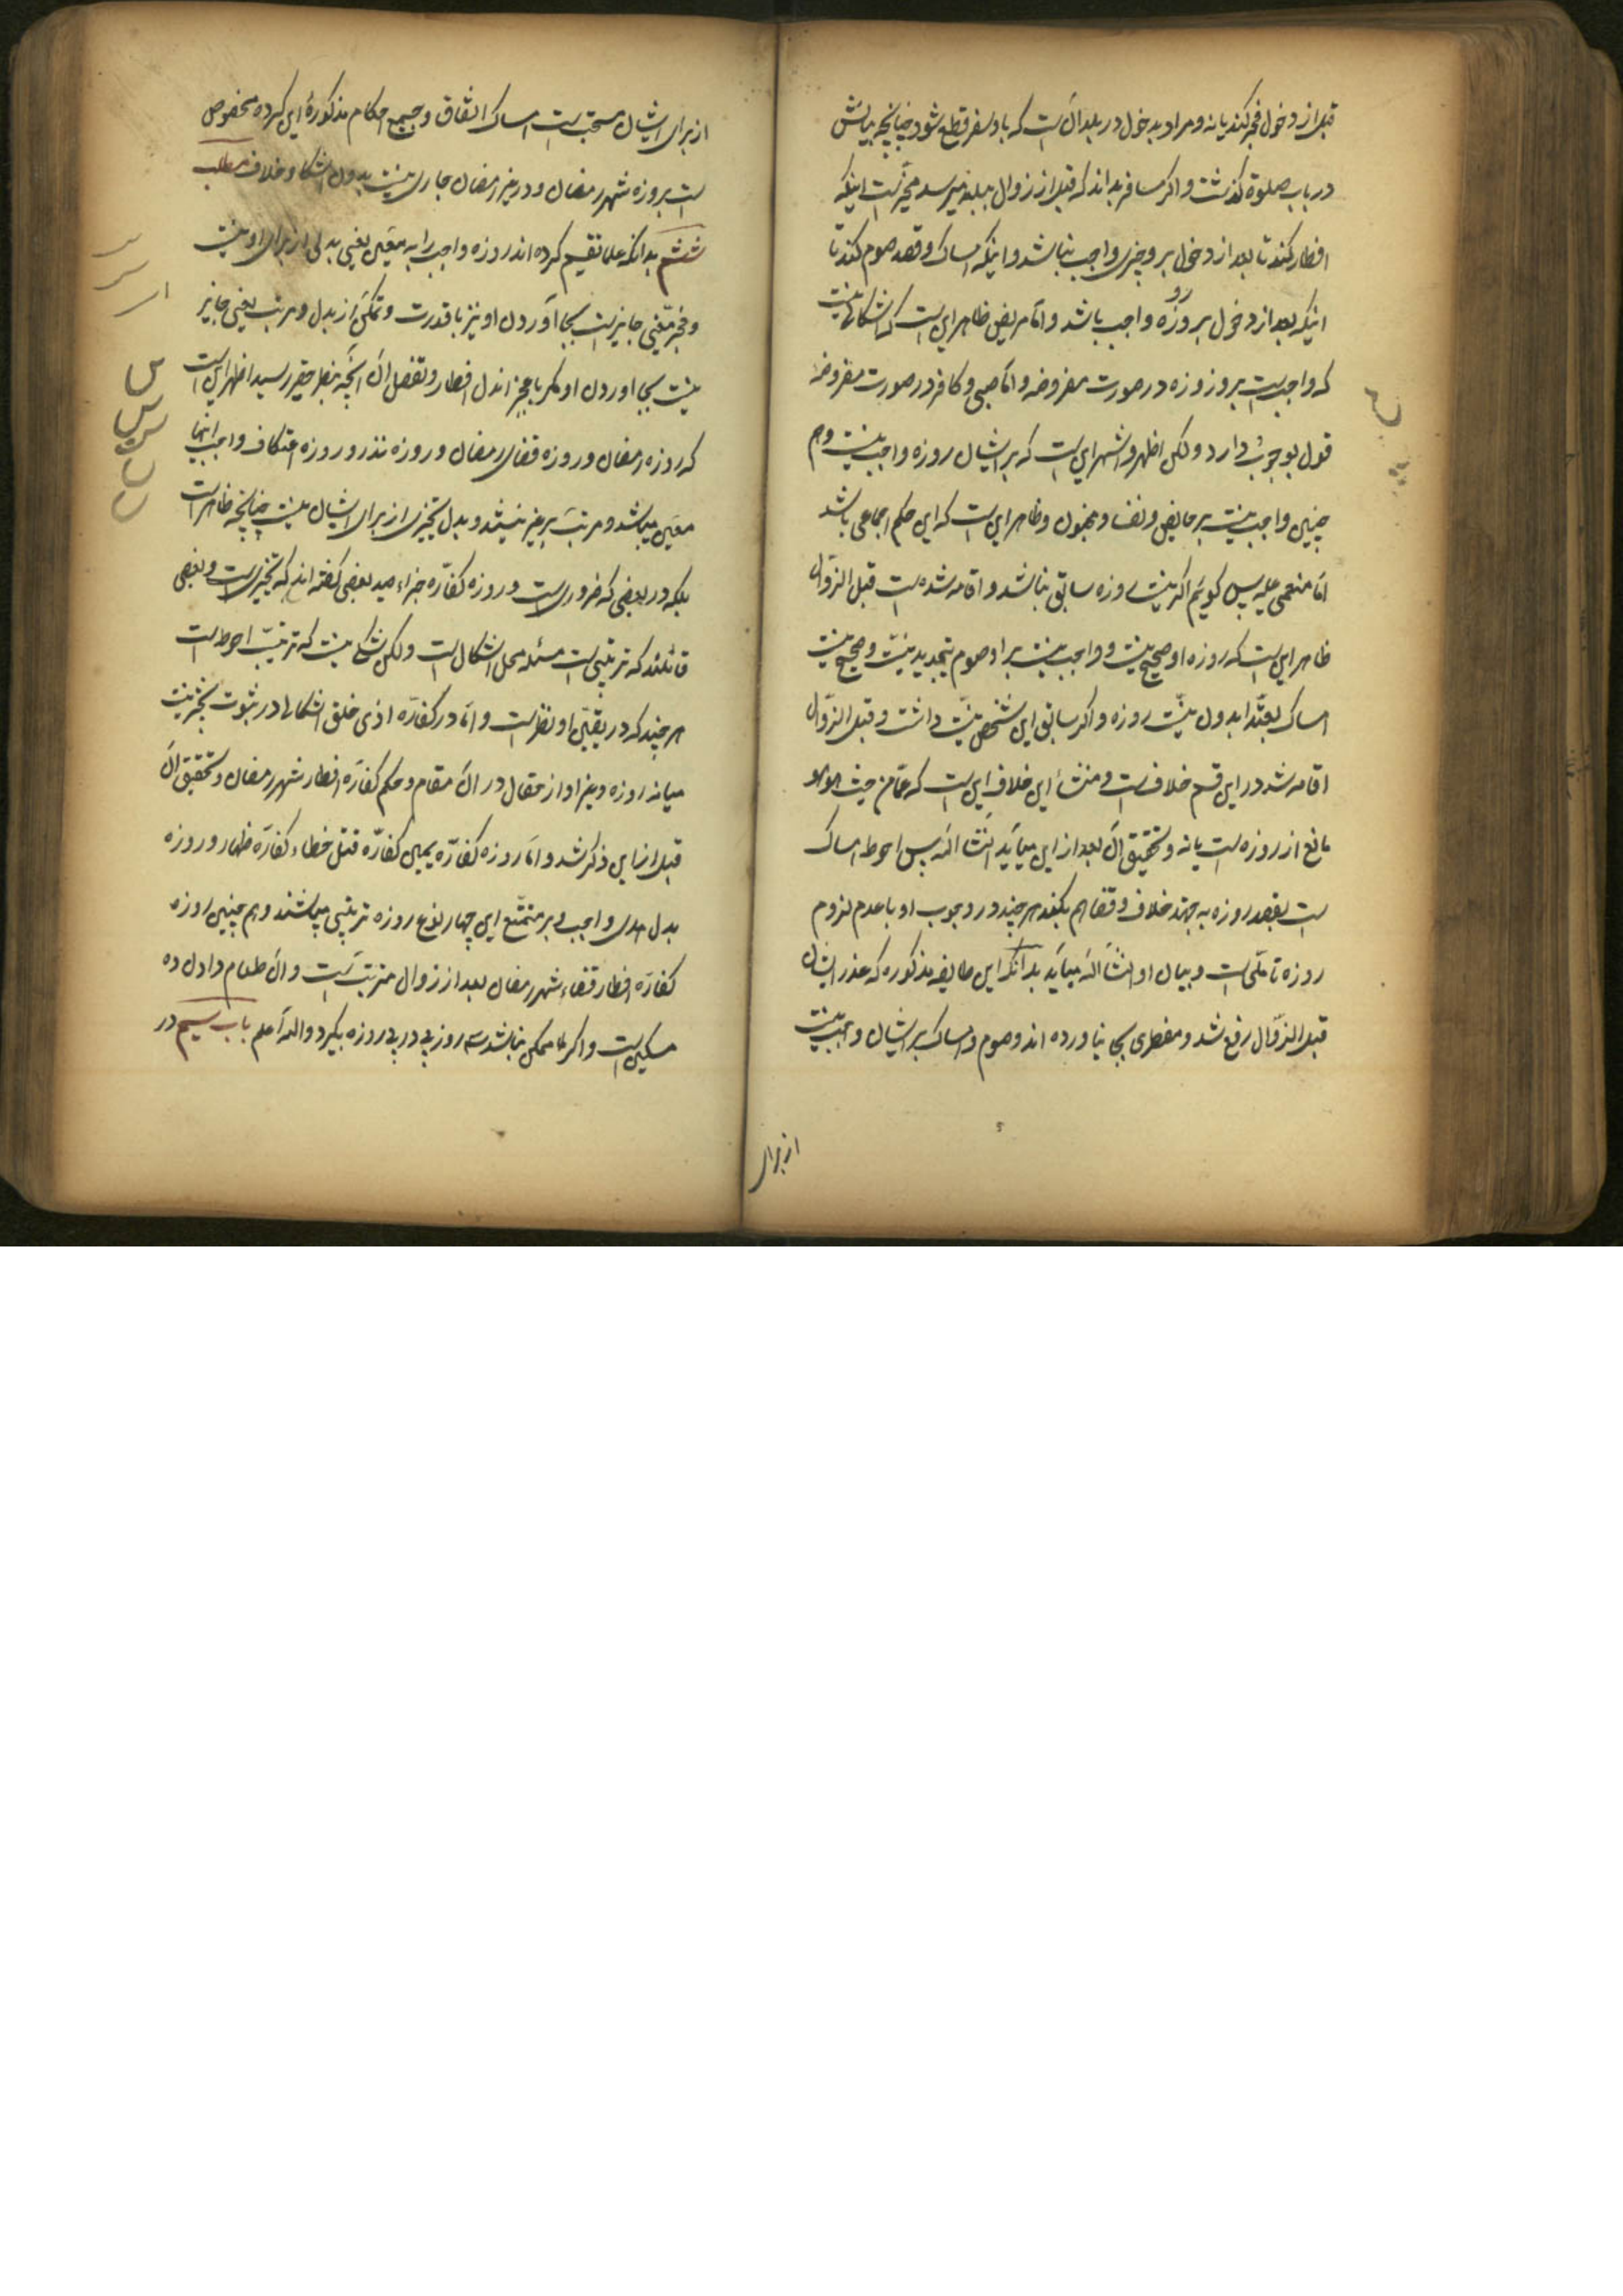 قبل از دخول فجر کند یا نه و مراد بدخول در بلد آن است که باو سفر قطع شود چنانچه بیانش
در باب صلوة گذشت و اگر مسافر بداند که قبل از زوال ببلد میرسد مخیر است اینکه
افطار کند تا بعد از دخول بر او چیزی واجب نباشد و اینکه امساک و قصد صوم کند تا
اینکه بعد از دخول بر او روزه واجب باشد و اما مریض ظاهر این است که اشکالی نیست
که واجب است بر او روزه در صورت مفروضه و اما صبی و کافر در صورت مفروضه
قول بوجوب دارد و لکن اظهر و اشهر این است که بر ایشان روزه واجب نیست و هم
چنین واجب نیست بر حایض و نفسا و مجنون و ظاهر این است که این حکم اجماعی باشد
اما مغمی علیه پس گویم اگر نیت روزه سابق نباشد و افاقه شده است قبل الزوال
ظاهر این است که روزه او صحیح نیست و واجب نیست بر او صوم بتجدید نیت و صحیح نیست
امساک تعبدا بدون نیت روزه و اگر سابق این شخص نیت داشت و قبل الزوال
افاقه شد در این قسم خلاف است و منشأ این خلاف این است که غما من حیث هو هو
مانع از روزه است یا نه و تحقیق آن بعد از این میآید انشاء الله پس احوط امساک
است بقصد روزه به جهة خلاف و قضا هم بکند هر چند در وجوب او با عدم لزوم
روزه تأملی است و بیان او انشاء الله میآید بدانکه این طایفه مذکوره که عذر ایشان
قبل الزوال رفع شد و مفطری بجا نیاورده اند و صوم و امساک بر ایشان واجب نیست
از برای
از برای ایشان مستحب است امساک اتفاقا و جمیع احکام مذکورهٔ این کرده مخصوص
است بروزه شهر رمضان و در غیر رمضان جاری نیست بدون اشکال و خلاف مطلب
ششم بدانکه علما تقسیم کرده اند روزه واجب را به معین یعنی بدلی از برای او نیست
و مخیر یعنی جایز است بجا آوردن او نیز با قدرت و تمکن از بدل و مرتب یعنی جایز
نیست بجا اوردن او مگر با عجز از بدل افطار و تفصیل آن آنچه بنظر حقیر رسید اظهر این است
که روزه رمضان و روزه قضای رمضان و روزه نذر و روزه اعتکاف واجب اینها
معین میباشد و مرتب بر غیر نیستند و بدل تخییری از برای ایشان نیست چنانچه ظاهر است
بلکه در بعضی که ضروری است و روزه کفاره جزاء صید بعضی گفته اند که تخییری است و بعضی
قائلند که ترتیبی است مسئله محل اشکال است و لکن شکی نیست که ترتیب احوط است
هر چند که در یقینی او نظر است و اما در کفاره اذی حلق اشکالی در ثبوت تخییر نیست
میانه روزه و غیر او از مقال در آن مقام و حکم کفاره افطار شهر رمضان و تحقیق آن
قبل از این ذکر شد و اما روزه کفاره یمین کفاره قتل خطاء کفاره ظهار و روزه
بدل هدی واجب بر متمتع این چهار نوع روزه ترتیبی میباشند و هم چنین روزه
کفاره افطار قضاء شهر رمضان بعد از زوال مترتب است و آن طعام دادن ده
مسکین است و اگر ممکن نباشد سه روز پی در پی روزه بگیرد و الله اعلم باب سیم در